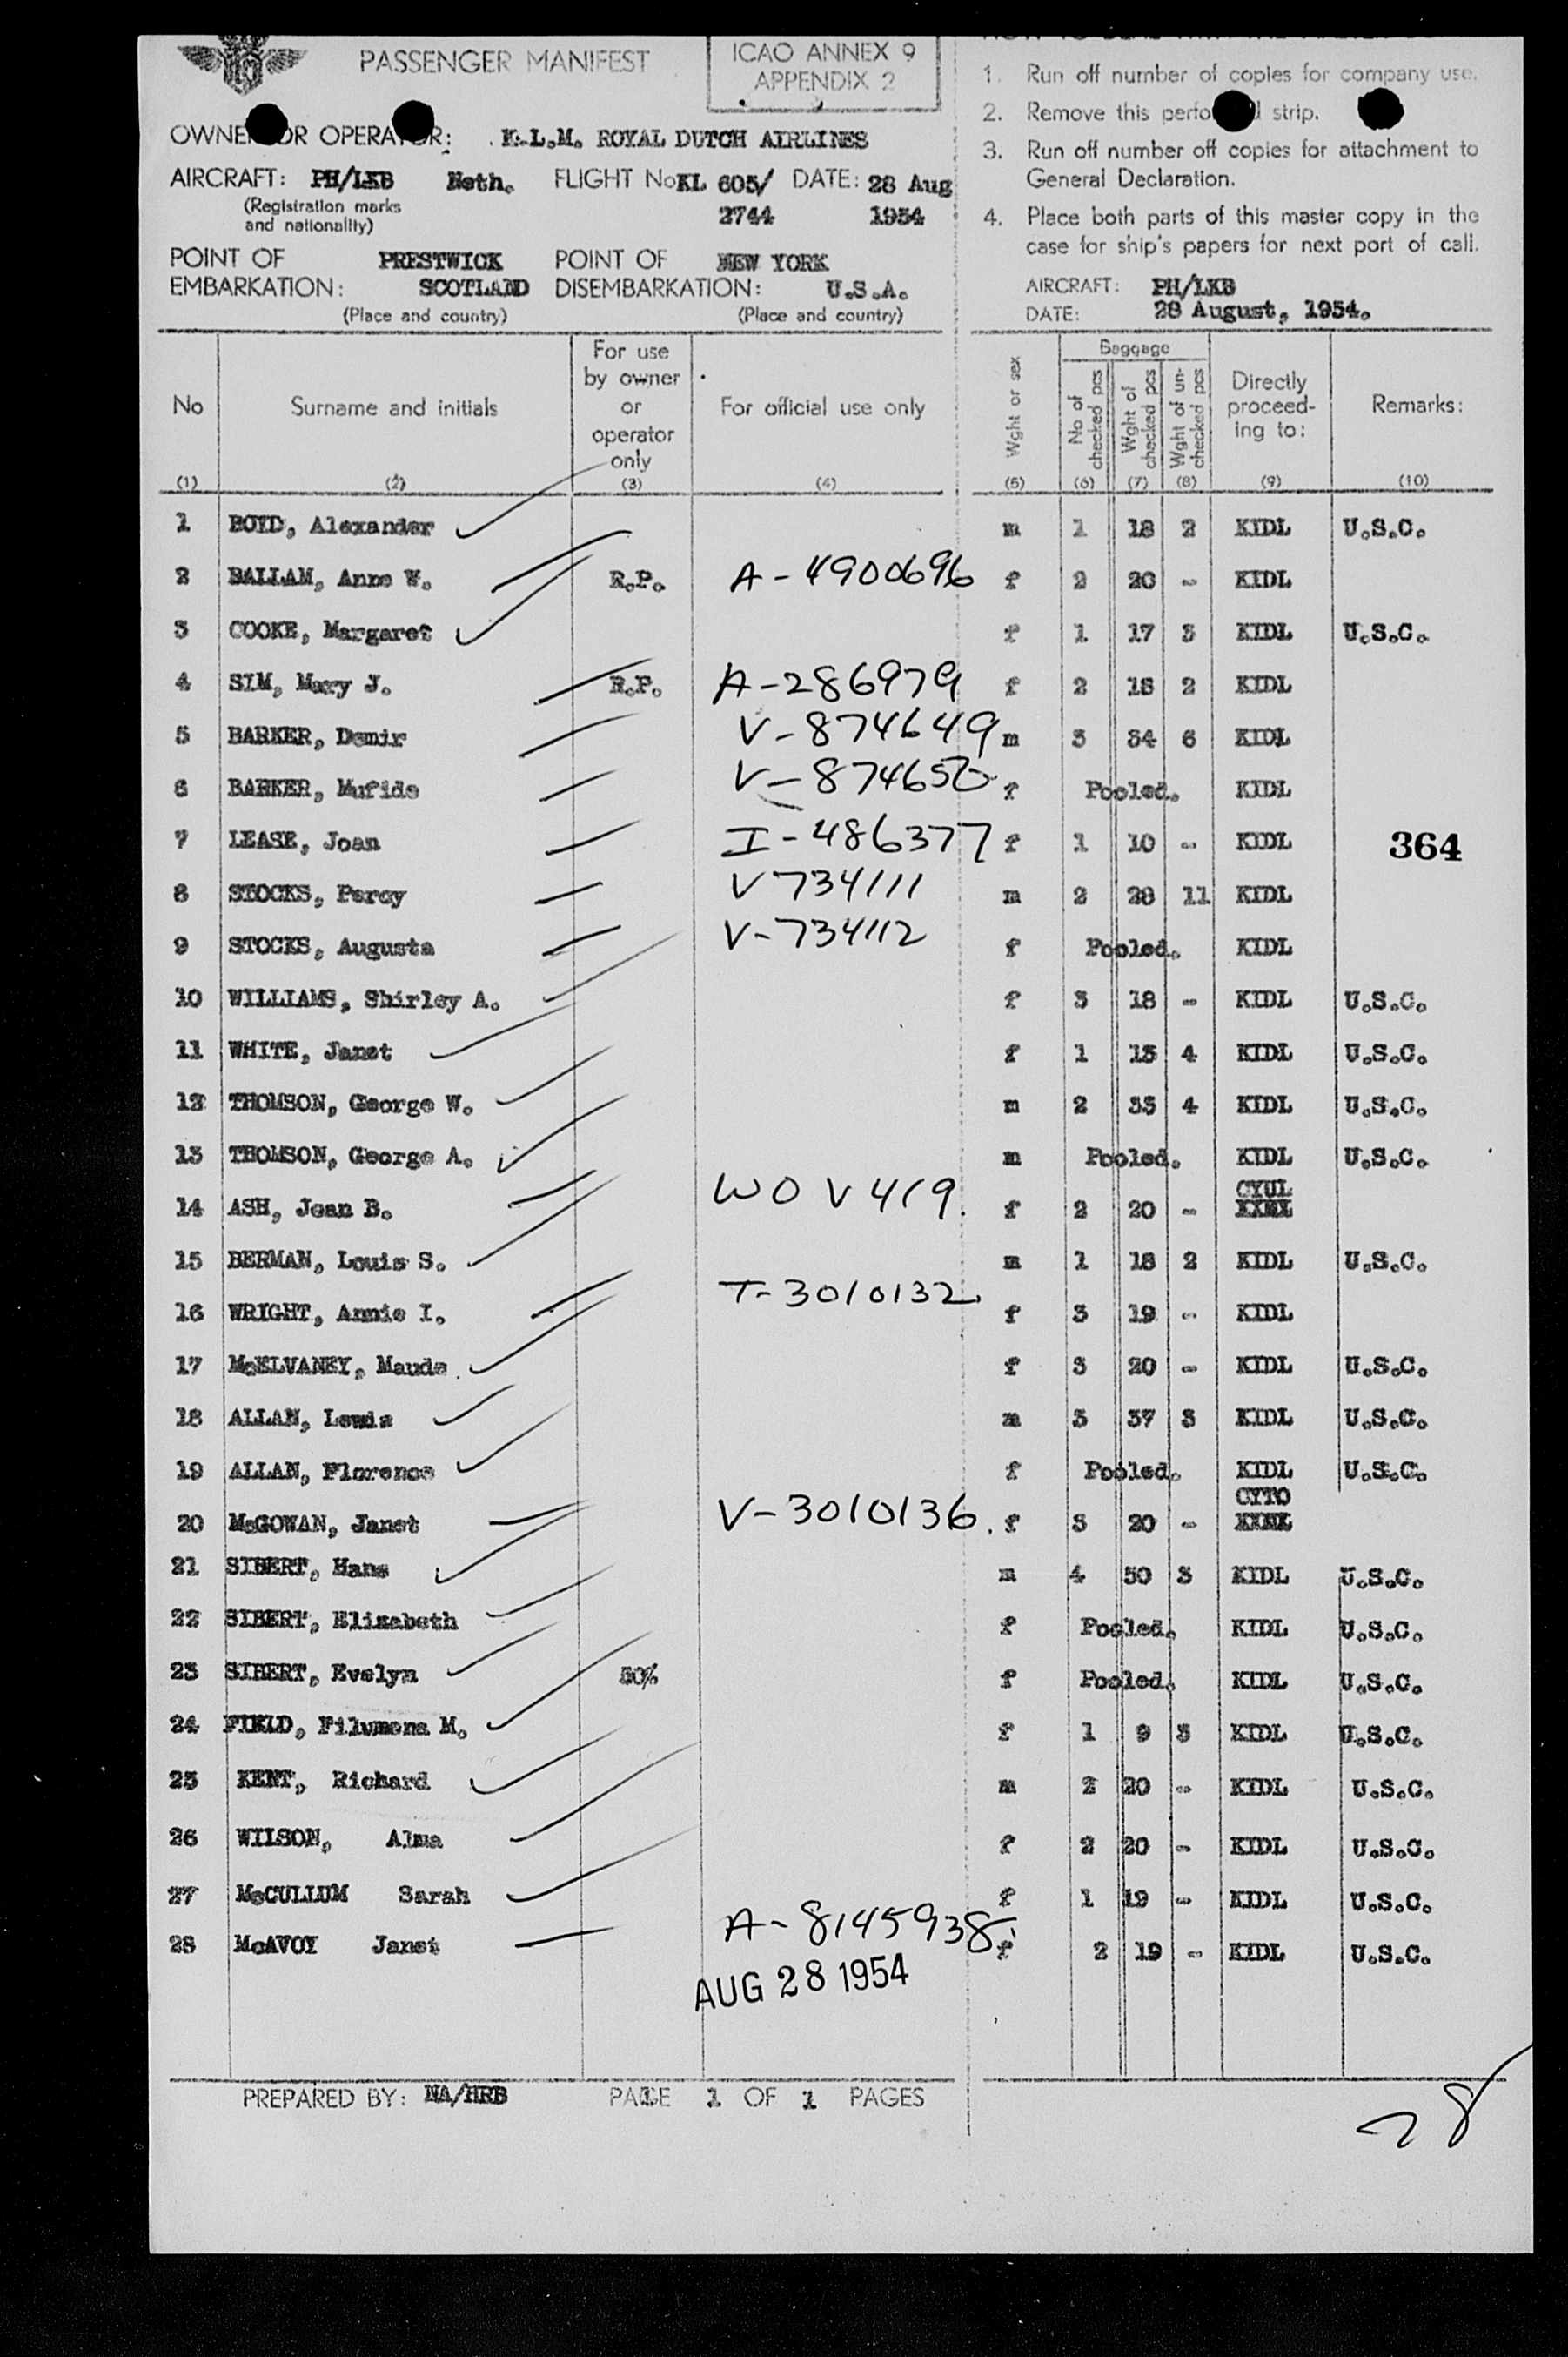 PASSENGER MANIFEST
ICAO ANNEX 9
APPENDIX 2
1. Run off number of copies for company use.
2. Remove this strip.
3. Run off number off copies for attachment to
General Declaration.
4. Place both parts of this master copy in the
case for ship's papers for next port of call.
AIRCRAFT: PH/LKB
DATE: 28 August, 1954.
OWNER OR OPERATOR: K.L.M. ROYAL DUTCH AIRLINES
AIRCRAFT: PH/LKB Neth. FLIGHT No KL 605/ DATE: 28 Aug
(Registration marks 2744 1954
and nationality)
POINT OF PRESTWICK POINT OF NEW YORK
EMBARKATION: SCOTLAND DISEMBARKATION: U.S.A.
(Place and country) (Place and country)
No Surname and initials For use by owner or operator only For official use only Wght or sex Baggage No of checked pcs Wght of checked pcs Wght of un-checked pcs Directly proceed-ing to: Remarks:
(1) (2) (3) (4) (5) (6) (7) (8) (9) (10)
1 BOYD, Alexander m 1 18 2 KIDL U.S.C.
2 BALLAM, Anne W. R.P. A-4900696 f 2 20 - KIDL
3 COOKE, Margaret f 1 17 3 KIDL U.S.C.
4 SIM, Mary J. R.P. A-286979 f 2 18 2 KIDL
5 BARKER, Demir V-874649 m 3 34 6 KIDL
6 BARKER, Mufide V-874650 f Pooled. KIDL
7 LEASE, Joan I-486377 f 1 10 - KIDL 364
8 STOCKS, Percy V 734111 m 2 28 11 KIDL
9 STOCKS, Augusta V-734112 f Pooled. KIDL
10 WILLIAMS, Shirley A. f 3 18 - KIDL U.S.C.
11 WHITE, Janet f 1 15 4 KIDL U.S.C.
12 THOMSON, George W. m 2 33 4 KIDL U.S.C.
13 THOMSON, George A. m Pooled. KIDL U.S.C.
14 ASH, Jean B. WOV419. f 2 20 - CYUL
15 BERMAN, Louis S. m 1 18 2 KIDL U.S.C.
16 WRIGHT, Annie I. T-3010132 f 3 19 - KIDL
17 McELVANEY, Maude f 3 20 - KIDL U.S.C.
18 ALLAN, Lewis m 3 37 3 KIDL U.S.C.
19 ALLAN, Florence f Pooled. KIDL U.S.C.
20 McGOWAN, Janet V-3010136. f 3 20 - CYTO
21 SIBERT, Hans m 4 50 3 KIDL U.S.C.
22 SIBERT, Elizabeth f Pooled. KIDL U.S.C.
23 SIBERT, Evelyn 50% f Pooled. KIDL U.S.C.
24 FIELD, Filumena M. f 1 9 3 KIDL U.S.C.
25 KENT, Richard m 2 20 - KIDL U.S.C.
26 WILSON, Alma f 2 20 - KIDL U.S.C.
27 McCULLUM Sarah f 1 19 - KIDL U.S.C.
28 McAVOY Janet A-8145938 f 2 19 - KIDL U.S.C.
AUG 28 1954
PREPARED BY: NA/HRB PAGE 1 OF 1 PAGES
28